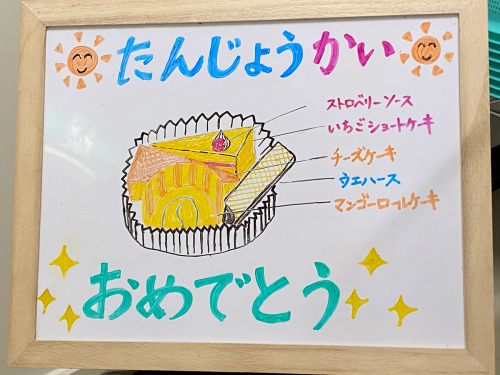 たんじょうかい
ストロベリーソース
いちごショートケーキ
チーズケーキ
ウエハース
マンゴーロールケーキ
おめでとう